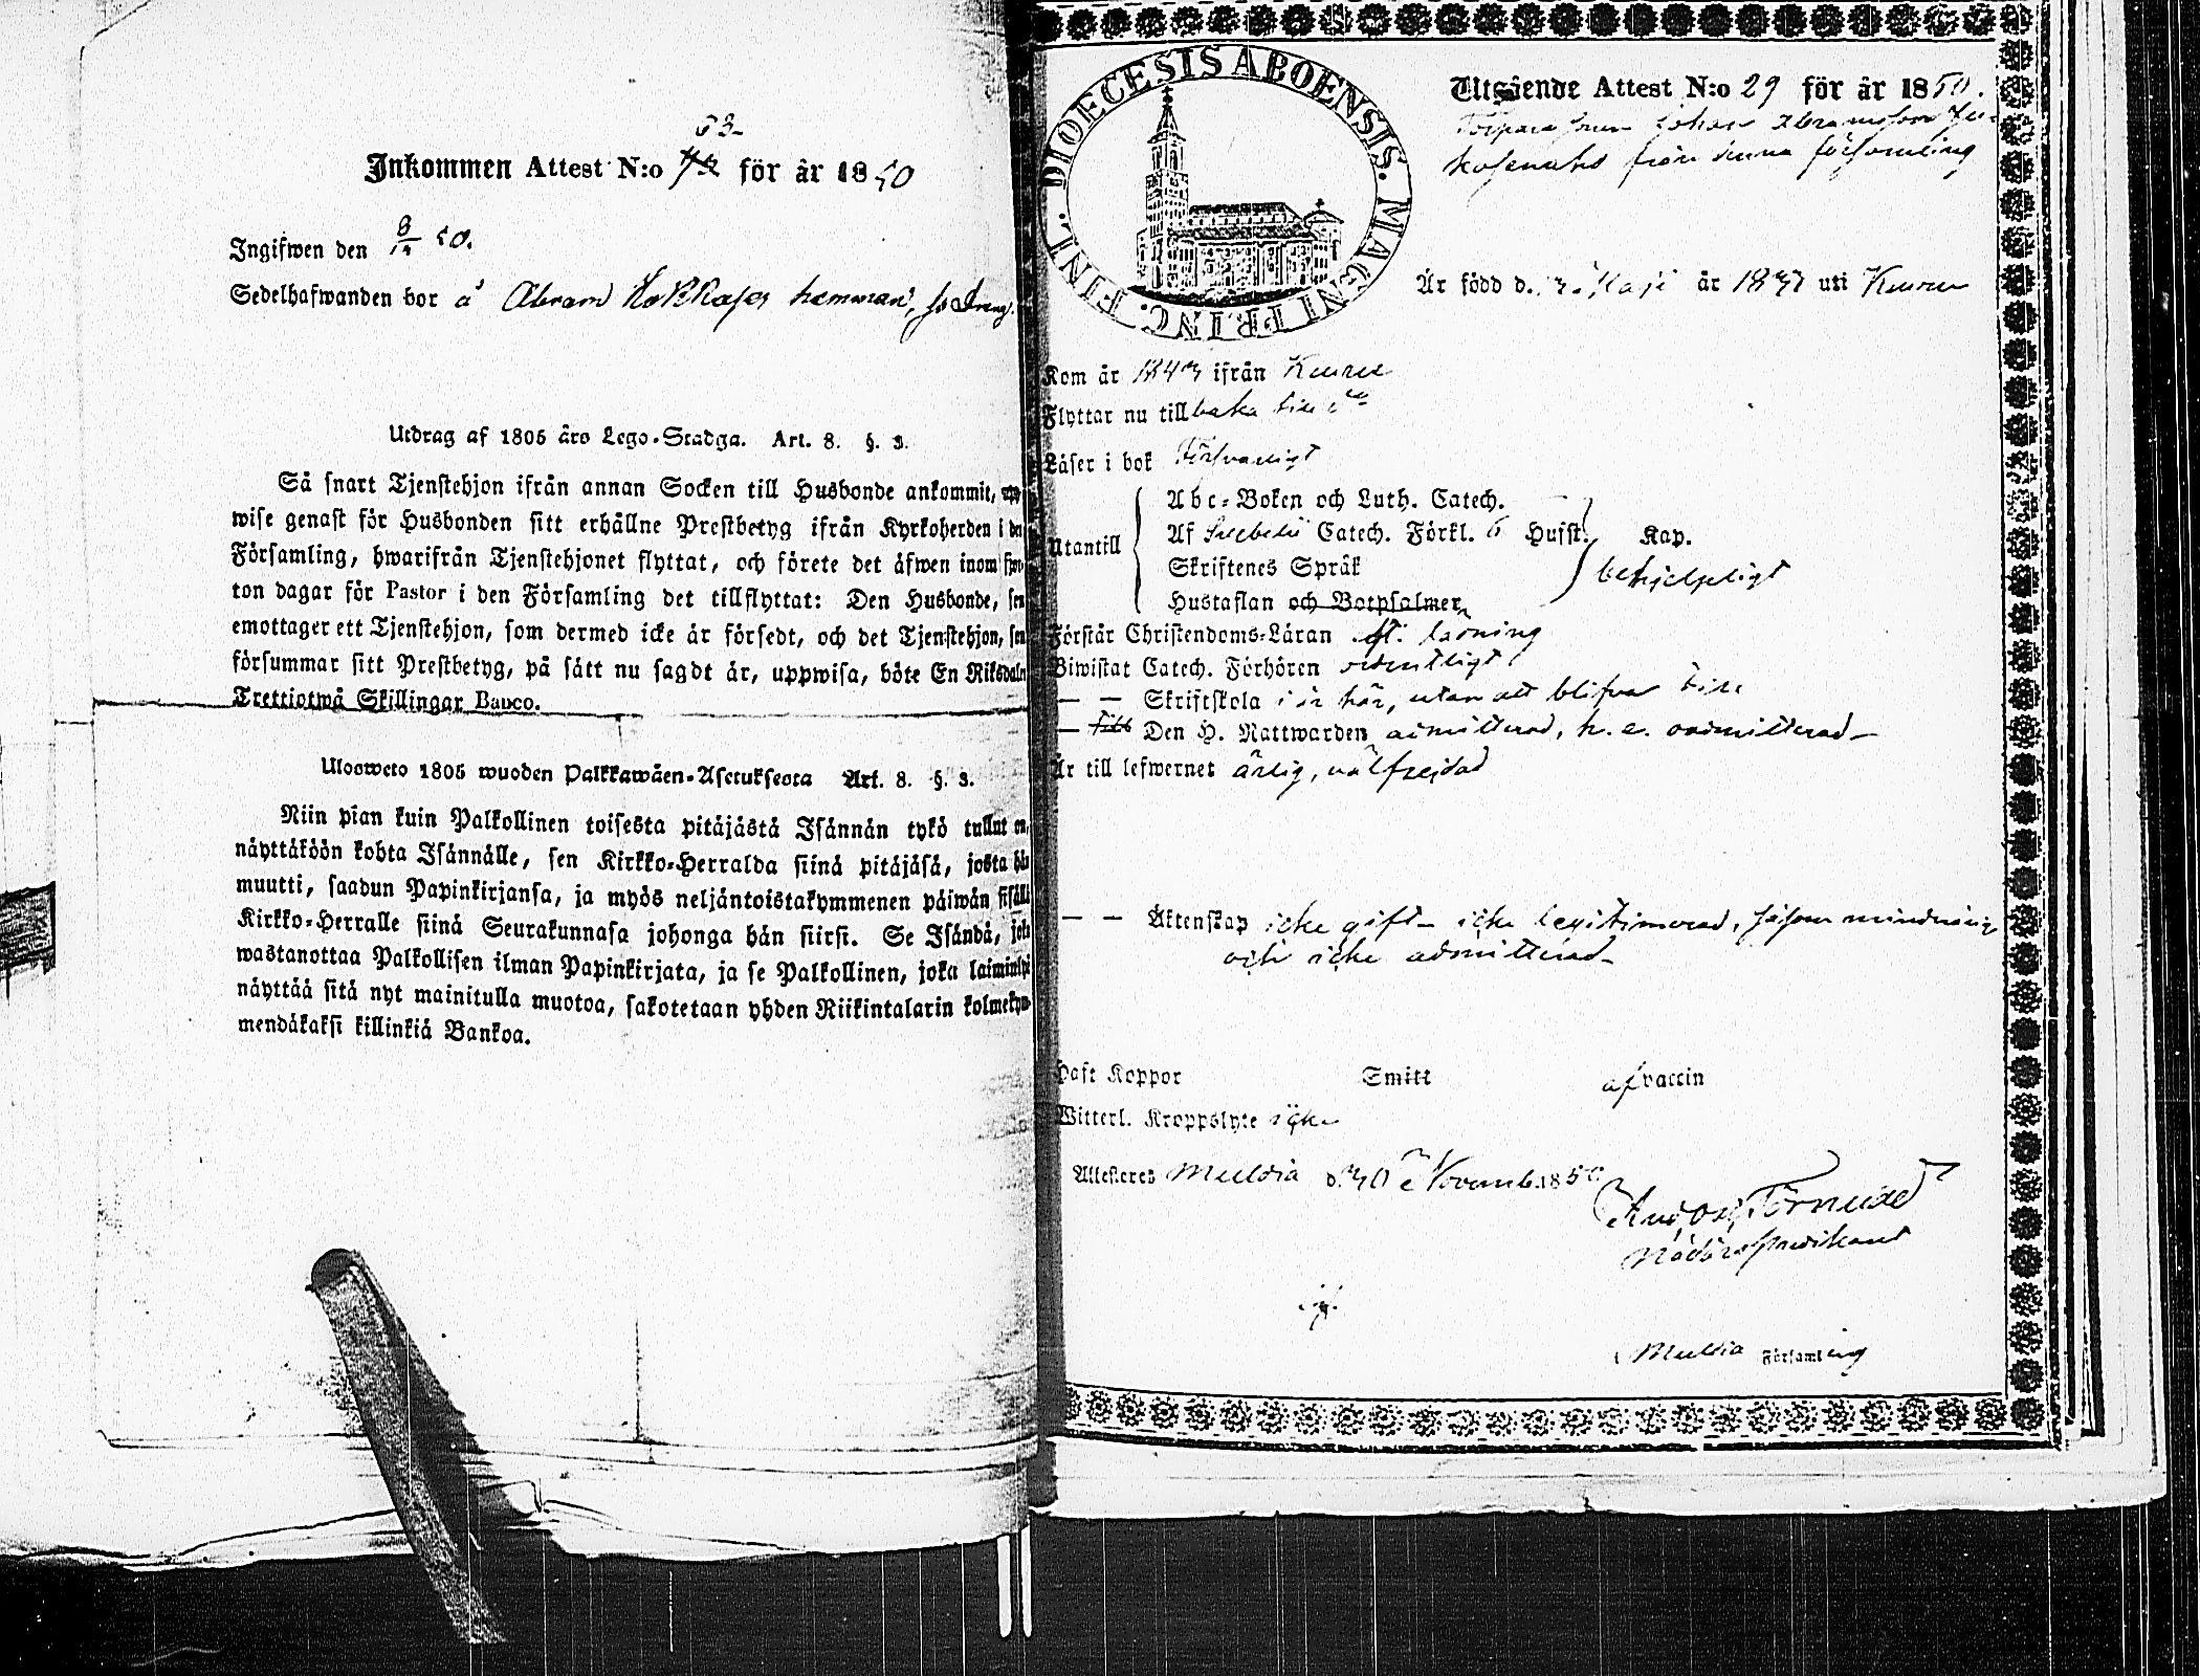 63
Inkommen Attest N:o för år 1850
Ingifwen den 8/12 50.
Sedelhafwanden bor å Abram hemman,
Utdrag af 1805 års Lego-Stadga. Art. 8. §. 3.
Så snart Tjenstehjon ifrån annan Socken till Husbonde ankommit,
wise genast för Husbonden sitt erhållne Prestbetyg ifrån Kyrkoherden i den
Församling, hwarifrån Tjenstehjonet flyttat, och förete det äfwen inom fjor-
ton dagar för Pastor i den Församling det tillflyttat: Den Husbonde, som
emottager ett Tjenstehjon, som dermed icke är försedt, och det Tjenstehjon, som
försummar sitt Prestbetyg, på sätt nu sagdt är, uppwisa, böte En Riksdaler
Trettiotwå Skillingar Banco.
Ulosweto 1805 wuoden Palkkawäen-Asetuksesta Art. 8. §. 3.
Niin pian kuin Palkollinen toisesta pitäjästä Isännän tykö tullut on,
näyttäköön kohta Isännälle, sen Kirkko-Herralda siinä pitäjäsä, josta hän
muutti, saadun Papinkirjansa, ja myös neljäntoistakymmenen päiwän sisällä
Kirkko-Herralle siinä Seurakunnasa johonga hän siirsi. Se Isändä, joka
wastanottaa Palkollisen ilman Papinkirjata, ja se Palkollinen, joka laiminlyö
näyttää sitä nyt mainitulla muotoa, sakotetaan yhden Riikintalarin kolmekym-
mendäkaksi killinkiä Bankoa.
DIOECESIS ABOENSIS. MAGNI PRINC. FINL.
Utgående Attest N:o 29 för år 1850.
Johan Abramsson
från denna församling
Är född d. 3 Maji år 1837 uti Keuru
Kom år 1843 ifrån Keuru
Flyttar nu tillbaka till
Läser i bok försvarligt
Utantill
Abc-Boken och Luth. Catech.
Af Svebelii Catech. Förkl. 6 Hufst. Kap.
Skriftenes Språk behjelpligt
Hustaflan och Botpsalmer
Förstår Christendoms-Läran läsning
Biwistat Catech. Förhören ordentligt
— — Skriftskola i år här, utan att blifva till
— — Den H. Nattwarden admitterad, h. e. oadmitterad
Är till lefwernet ärlig, välfrejdad
— — Äktenskap icke gift icke legitimerad, såsom minderårig
och icke admitterad
Haft Koppor Smitt af vaccin
Witterl. Kroppslyte icke
Attesteras Multia d. 30 Novemb. 1850
August Törnudd
Nådårspredikant
Multia Församling